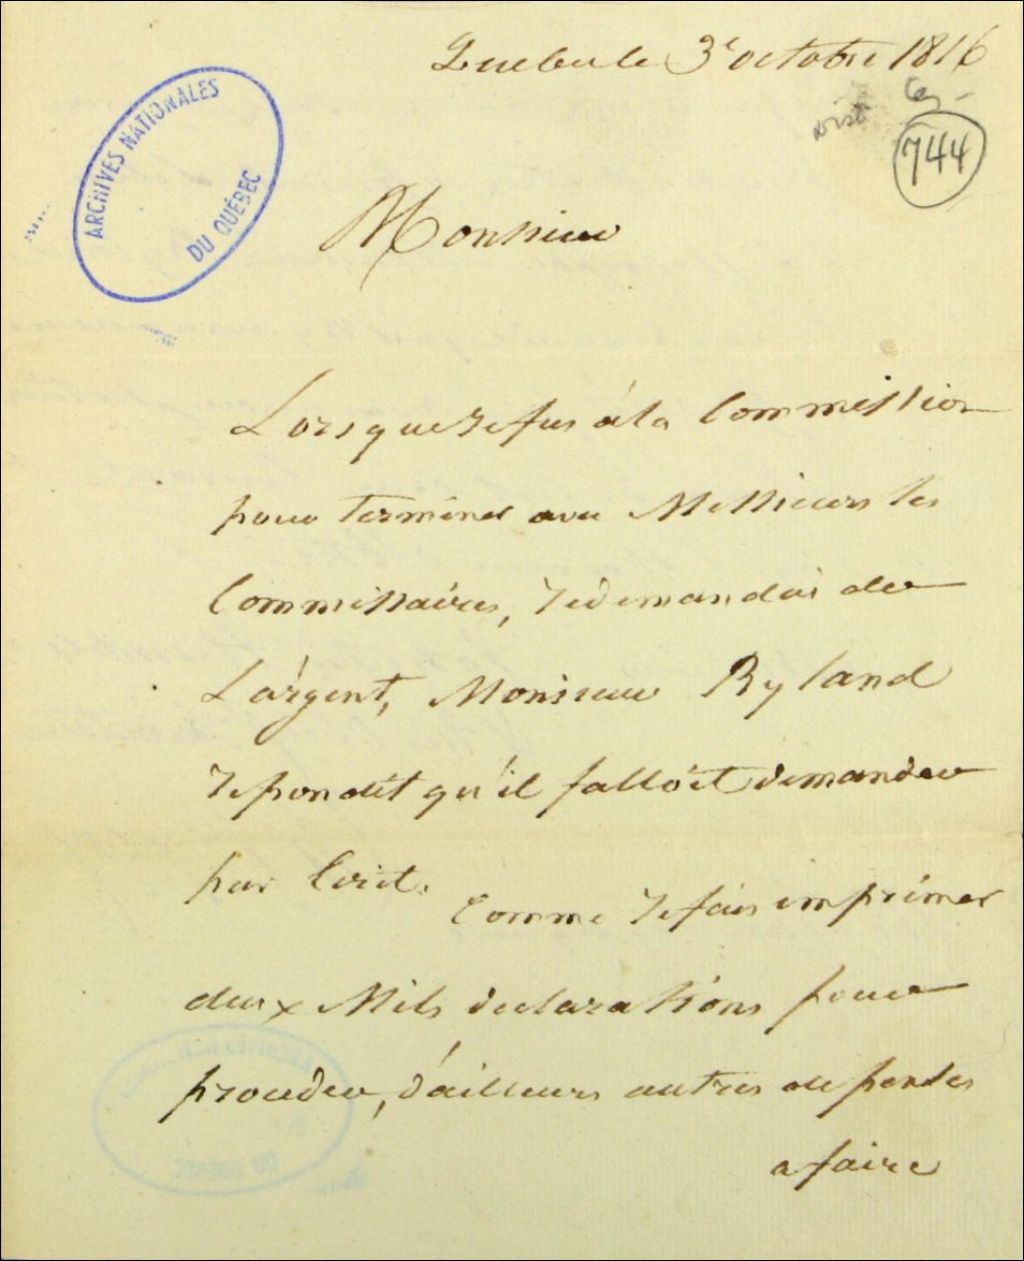 Quebec le 3e octobre 1816
ARCHIVES NATIONALES
DU QUÉBEC
744
Monsieur
Lorsque Je fus à la Commission
pour terminer avec Messieurs les
Commissaires, Je demandai de
L'argent, Monsieur Ryland
repondit qu'il falloit demander
par Ecrit. Comme Je fais imprimer
deux Mils declarations pour
proceder, d'ailleurs autres depenses
a faire